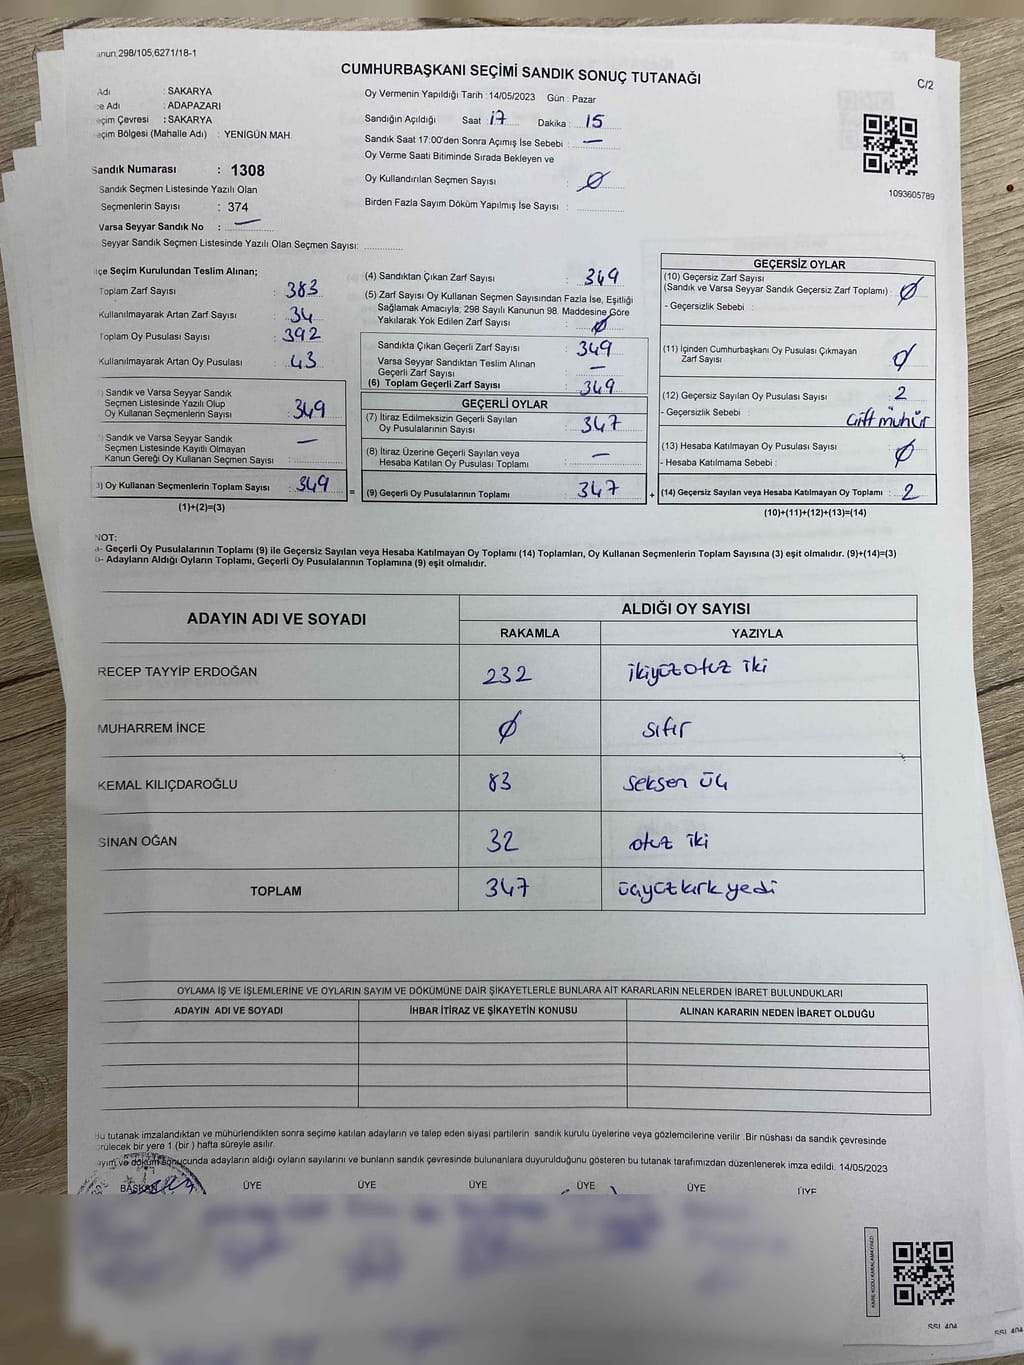 anun:298/105,6271/18-1
CUMHURBAŞKANI SEÇİMİ SANDIK SONUÇ TUTANAĞI
C/2
Adı : SAKARYA
çe Adı : ADAPAZARI
eçim Çevresi : SAKARYA
eçim Bölgesi (Mahalle Adı) : YENİGÜN MAH.
Sandık Numarası : 1308
Sandık Seçmen Listesinde Yazılı Olan
Seçmenlerin Sayısı : 374
Varsa Seyyar Sandık No : —
Seyyar Sandık Seçmen Listesinde Yazılı Olan Seçmen Sayısı:
Oy Vermenin Yapıldığı Tarih : 14/05/2023 Gün : Pazar
Sandığın Açıldığı Saat : 17 Dakika : 15
Sandık Saat 17:00'den Sonra Açımış İse Sebebi : —
Oy Verme Saati Bitiminde Sırada Bekleyen ve
Oy Kullandırılan Seçmen Sayısı : Ø
Birden Fazla Sayım Döküm Yapılmış İse Sayısı :
1093605789
lçe Seçim Kurulundan Teslim Alınan;
Toplam Zarf Sayısı : 383
Kullanılmayarak Artan Zarf Sayısı : 34
Toplam Oy Pusulası Sayısı : 392
Kullanılmayarak Artan Oy Pusulası : 43
) Sandık ve Varsa Seyyar Sandık
Seçmen Listesinde Yazılı Olup
Oy Kullanan Seçmenlerin Sayısı : 349
) Sandık ve Varsa Seyyar Sandık
Seçmen Listesinde Kayıtlı Olmayan
Kanun Gereği Oy Kullanan Seçmen Sayısı : —
3) Oy Kullanan Seçmenlerin Toplam Sayısı : 349
(1)+(2)=(3)
(4) Sandıktan Çıkan Zarf Sayısı : 349
(5) Zarf Sayısı Oy Kullanan Seçmen Sayısından Fazla İse, Eşitliği
Sağlamak Amacıyla; 298 Sayılı Kanunun 98. Maddesine Göre
Yakılarak Yok Edilen Zarf Sayısı : Ø
Sandıkta Çıkan Geçerli Zarf Sayısı : 349
Varsa Seyyar Sandıktan Teslim Alınan
Geçerli Zarf Sayısı : —
(6) Toplam Geçerli Zarf Sayısı : 349
GEÇERLİ OYLAR
(7) İtiraz Edilmeksizin Geçerli Sayılan
Oy Pusulalarının Sayısı : 347
(8) İtiraz Üzerine Geçerli Sayılan veya
Hesaba Katılan Oy Pusulası Toplamı : —
= (9) Geçerli Oy Pusulalarının Toplamı : 347
GEÇERSİZ OYLAR
(10) Geçersiz Zarf Sayısı
(Sandık ve Varsa Seyyar Sandık Geçersiz Zarf Toplamı) : Ø
- Geçersizlik Sebebi :
(11) İçinden Cumhurbaşkanı Oy Pusulası Çıkmayan
Zarf Sayısı : Ø
(12) Geçersiz Sayılan Oy Pusulası Sayısı : 2
- Geçersizlik Sebebi : Çift mühür
(13) Hesaba Katılmayan Oy Pusulası Sayısı : Ø
- Hesaba Katılmama Sebebi :
+ (14) Geçersiz Sayılan veya Hesaba Katılmayan Oy Toplamı : 2
(10)+(11)+(12)+(13)=(14)
NOT:
a- Geçerli Oy Pusulalarının Toplamı (9) ile Geçersiz Sayılan veya Hesaba Katılmayan Oy Toplamı (14) Toplamları, Oy Kullanan Seçmenlerin Toplam Sayısına (3) eşit olmalıdır. (9)+(14)=(3)
b- Adayların Aldığı Oyların Toplamı, Geçerli Oy Pusulalarının Toplamına (9) eşit olmalıdır.
ADAYIN ADI VE SOYADI ALDIĞI OY SAYISI
RAKAMLA YAZIYLA
RECEP TAYYİP ERDOĞAN 232 ikiyüzotuz iki
MUHARREM İNCE Ø sıfır
KEMAL KILIÇDAROĞLU 83 seksen üç
SİNAN OĞAN 32 otuz iki
TOPLAM 347 üçyüzkırkyedi
OYLAMA İŞ VE İŞLEMLERİNE VE OYLARIN SAYIM VE DÖKÜMÜNE DAİR ŞİKAYETLERLE BUNLARA AİT KARARLARIN NELERDEN İBARET BULUNDUKLARI
ADAYIN ADI VE SOYADI İHBAR İTİRAZ VE ŞİKAYETİN KONUSU ALINAN KARARIN NEDEN İBARET OLDUĞU
Bu tutanak imzalandıktan ve mühürlendikten sonra seçime katılan adayların ve talep eden siyasi partilerin sandık kurulu üyelerine veya gözlemcilerine verilir .Bir nüshası da sandık çevresinde
örülecek bir yere 1 (bir ) hafta süreyle asılır.
ayım ve döküm sonucunda adayların aldığı oyların sayılarını ve bunların sandık çevresinde bulunanlara duyurulduğunu gösteren bu tutanak tarafımızdan düzenlenerek imza edildi. 14/05/2023
BAŞKAN ÜYE ÜYE ÜYE ÜYE ÜYE ÜYE
KARE KODU KARALAMAYINIZ!
SSI 404
SSI 404